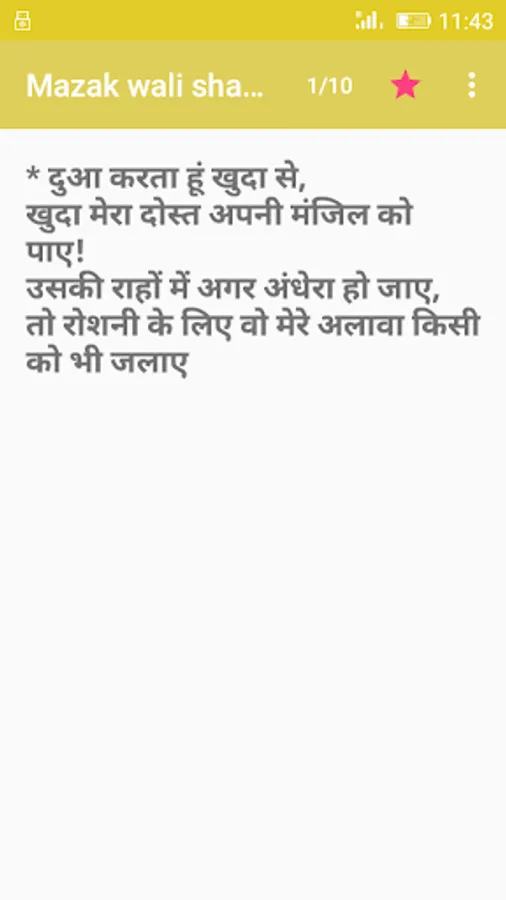 11:43
Mazak wali sha...
1/10
* दुआ करता हूं खुदा से,
खुदा मेरा दोस्त अपनी मंजिल को
पाए!
उसकी राहों में अगर अंधेरा हो जाए,
तो रोशनी के लिए वो मेरे अलावा किसी
को भी जलाए